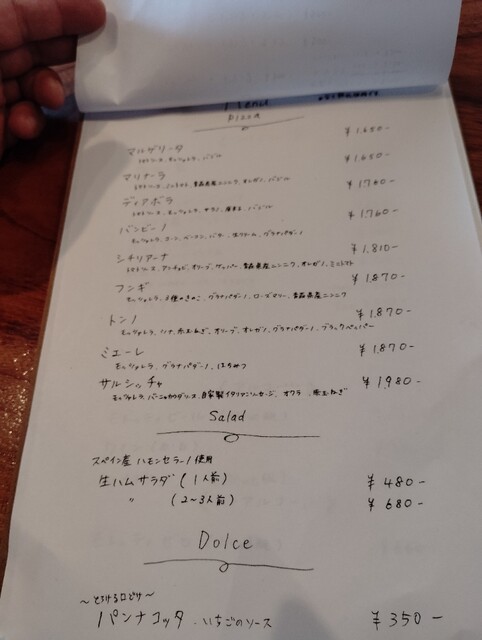 Menu
Pizza
マルゲリータ ¥1,650-
トマトソース、モッツァレラ、バジル
マリナーラ ¥1,650-
トマトソース、ミニトマト、青森県産ニンニク、オレガノ、バジル
ディアボラ ¥1,760-
トマトソース、モッツァレラ、サラミ、唐辛子、バジル
バンビーノ ¥1,760-
モッツァレラ、コーン、ベーコン、バター、生クリーム、グラナパダーノ
シチリアーナ ¥1,810-
トマトソース、アンチョビ、オリーブ、ケッパー、青森県産ニンニク、オレガノ、ミニトマト
フンギ ¥1,870-
モッツァレラ、3種のきのこ、グラナパダーノ、ローズマリー、青森県産ニンニク
トンノ ¥1,870-
モッツァレラ、ツナ、赤玉ねぎ、オリーブ、オレガノ、グラナパダーノ、ブラックペッパー
ミエーレ ¥1,870-
モッツァレラ、グラナパダーノ、はちみつ
サルシッチャ ¥1,980-
モッツァレラ、バーニャカウダソース、自家製イタリアンソーセージ、オクラ、赤玉ねぎ
Salad
スペイン産 ハモンセラーノ使用
生ハムサラダ (1人前) ¥480-
〃 (2~3人前) ¥680-
Dolce
~とろける口どけ~
パンナコッタ ..いちごのソース ¥350-